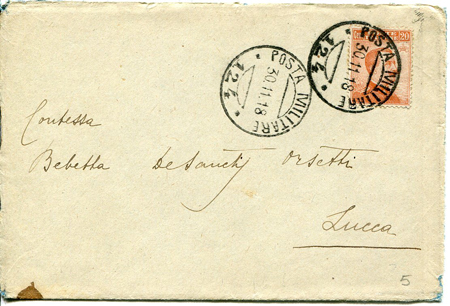 20
POSTA MILITARE
30.11.18
* 124 *
POSTA MILITARE
30.11.18
* 124 *
Contessa
Bebetta DeSanctis Orsetti
Lucca
5